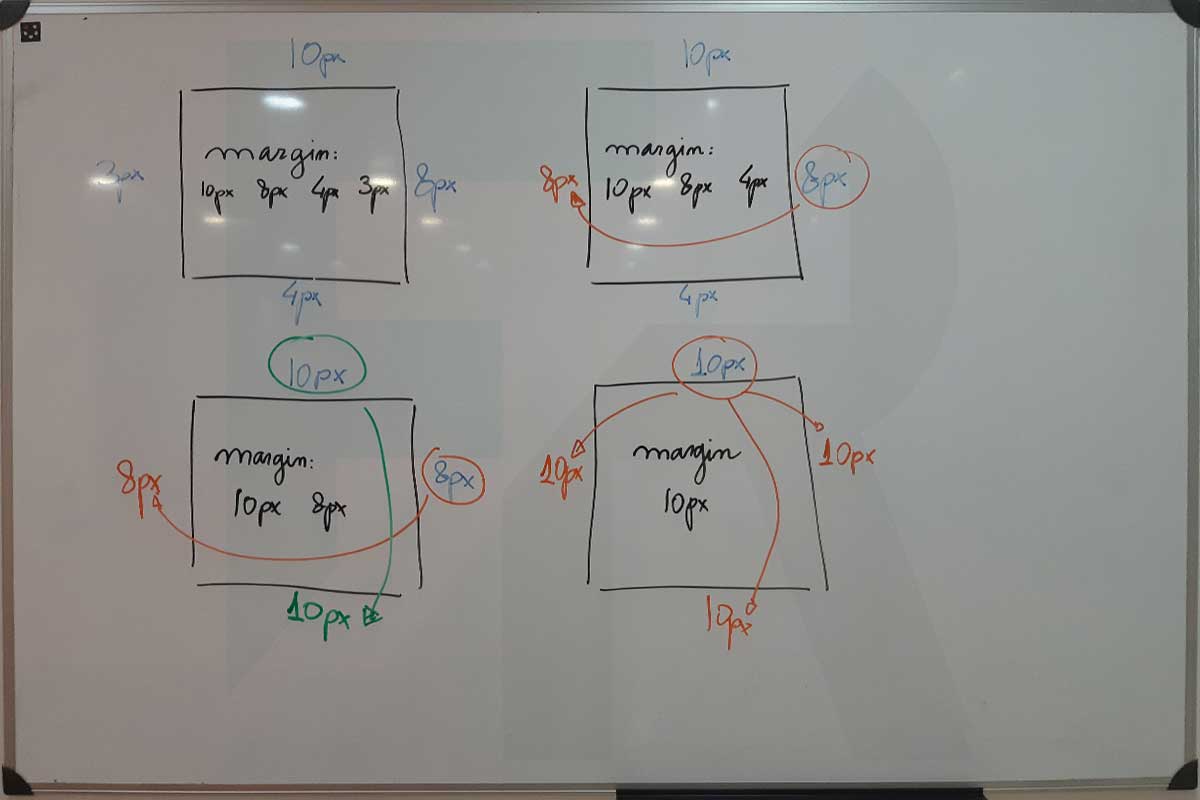 10px
margin:
10px 8px 4px 3px
3px
8px
4px
10px
margin:
10px 8px 4px
8px
8px
4px
10px
margin:
10px 8px
8px
8px
10px
10px
margin
10px
10px
10px
10px